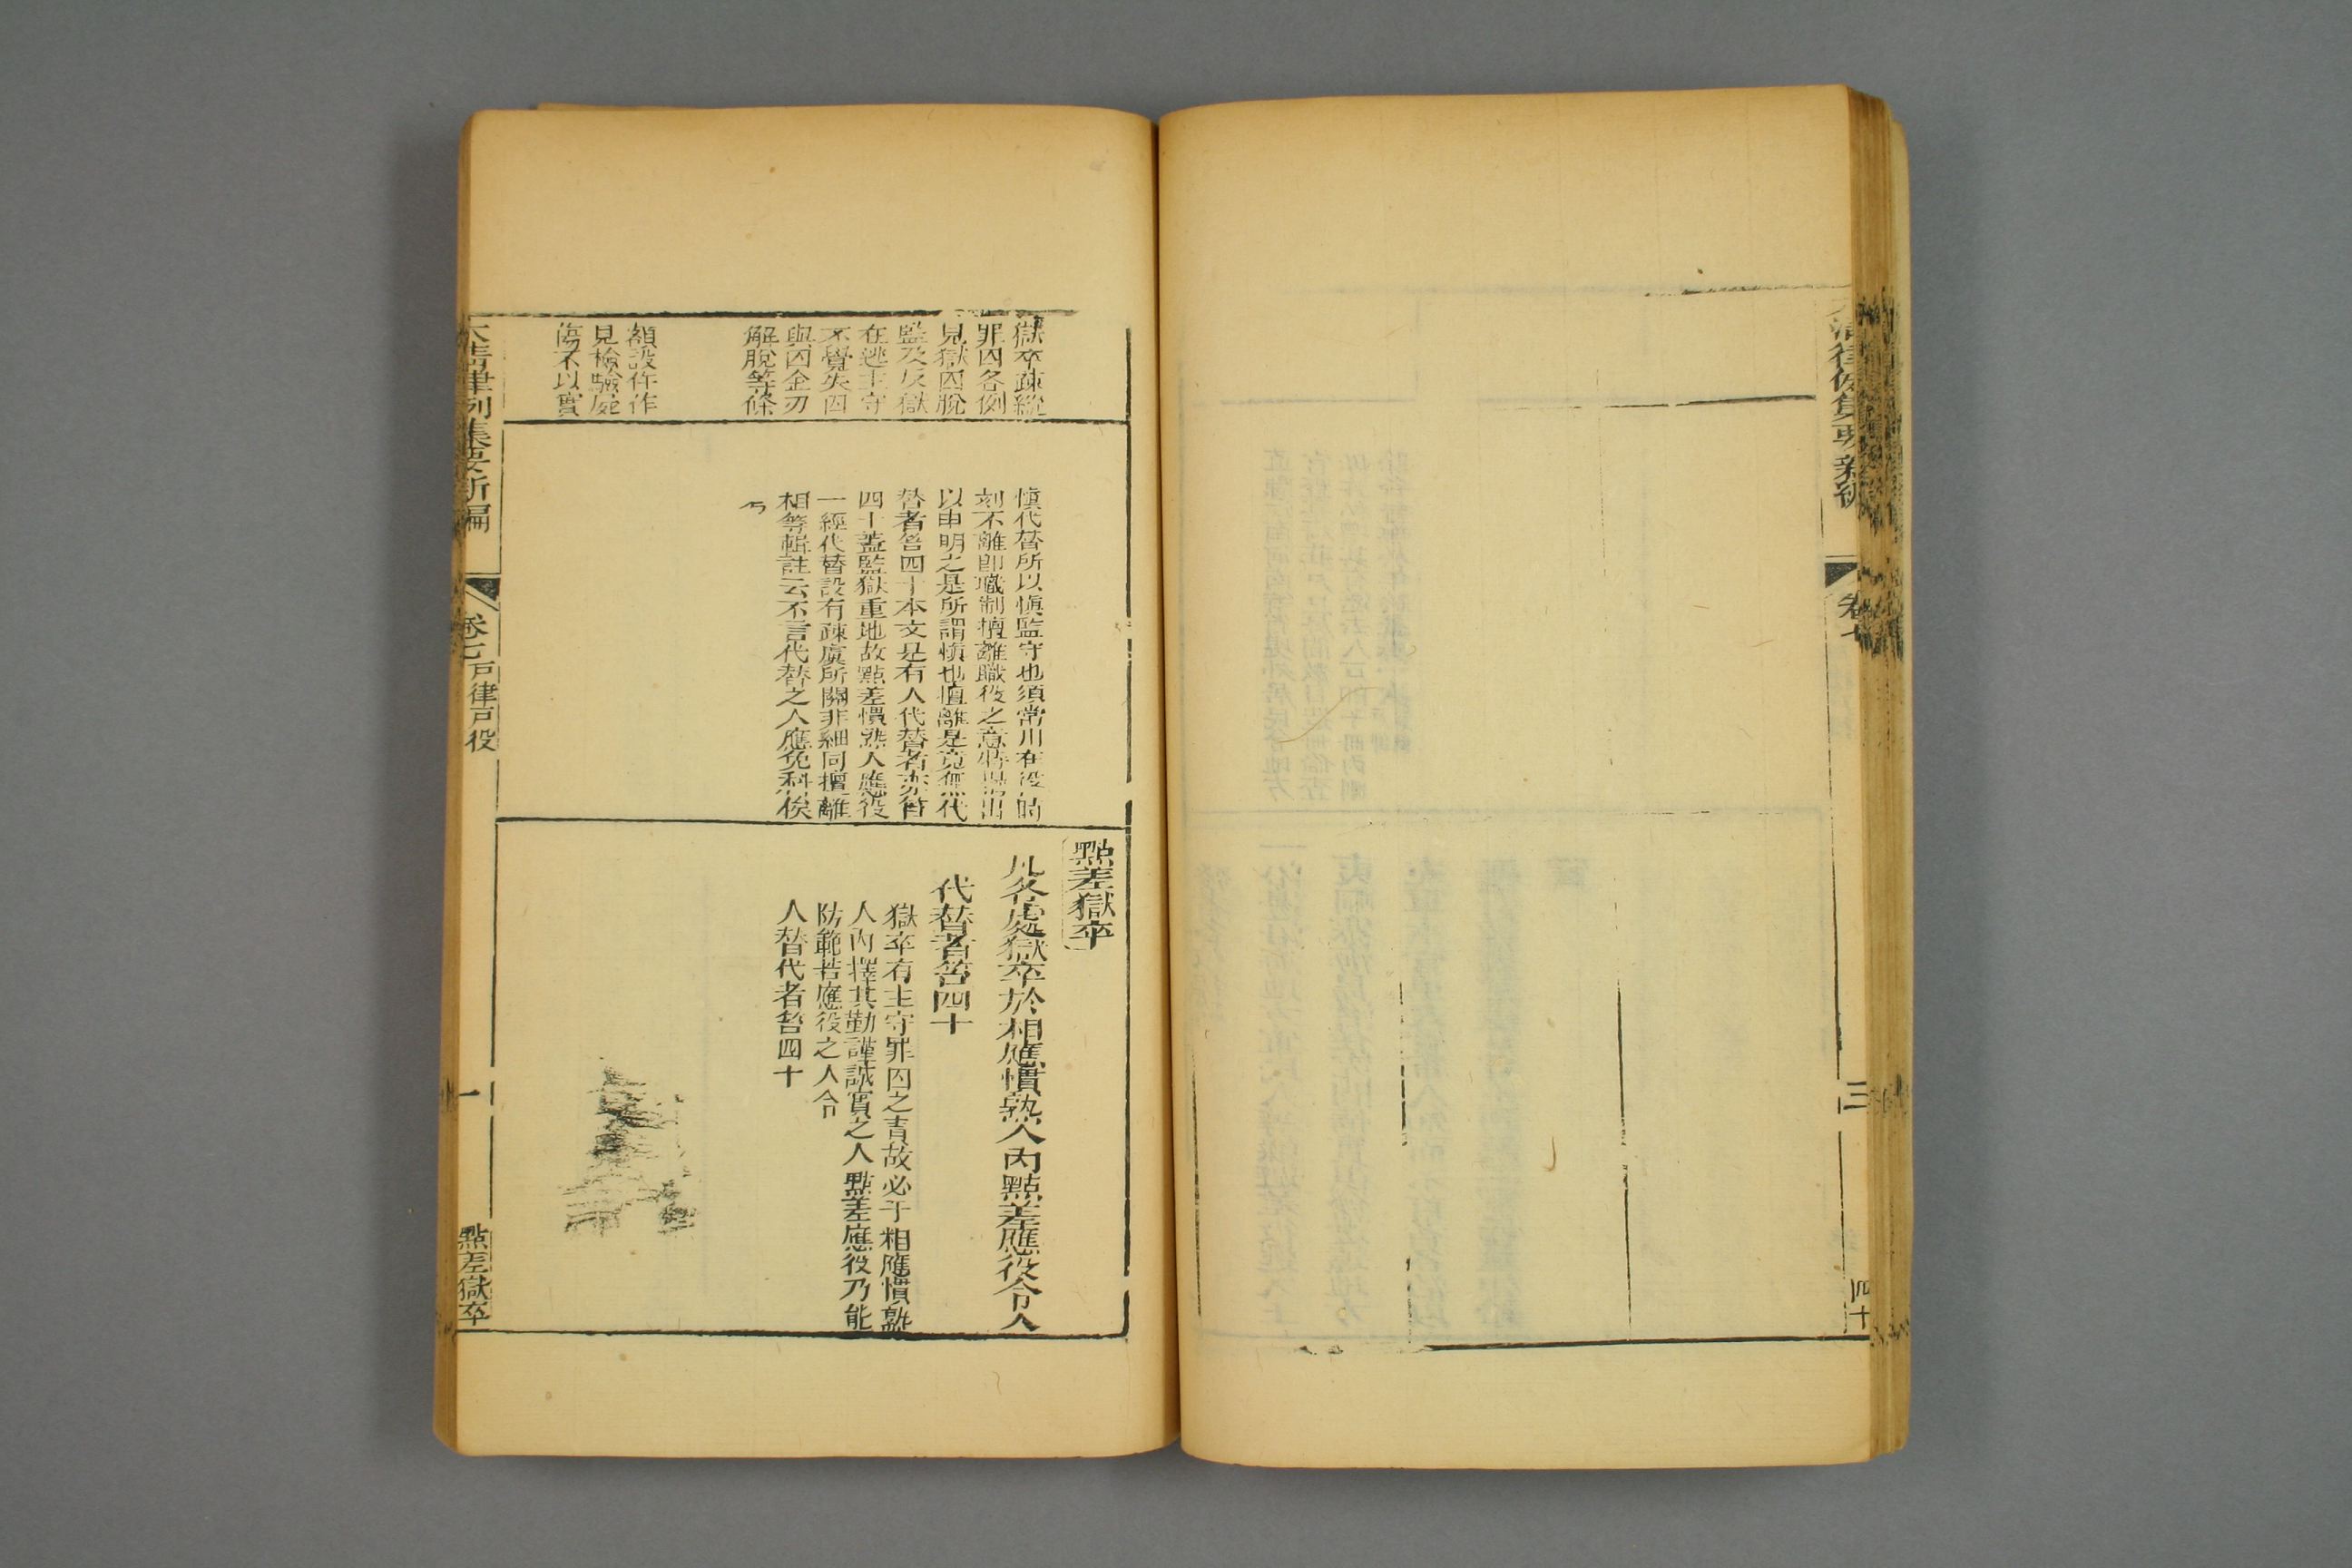 大清律例集要新編
卷七
三
四十
獄卒疎縱
罪囚各例
見獄囚脫
監及反獄
在逃主守
不覺失囚
與囚金刃
解脫等條
額設仵作
見檢驗屍
傷不以實
慎代替所以慎監守也須常川在役時
刻不離即職制擅離職役之意特揭出
以申明之是所謂慎也擅離是竟無代
替者笞四十本文是有人代替者亦笞
四十蓋監獄重地故點差慣熟人應役
一經代替設有疎虞所關非細同擅離
相等輯註云不言代替之人應免科俟
攷
點差獄卒
凡各處獄卒於相應慣熟人內點差應役令人
代替者笞四十
獄卒有主守罪囚之責故必于相應慣熟
人內擇其勤謹誠實之人點差應役乃能
防範若應役之人令
人替代者笞四十
大清律例集要新編
卷七戶律戶役
一
點差獄卒